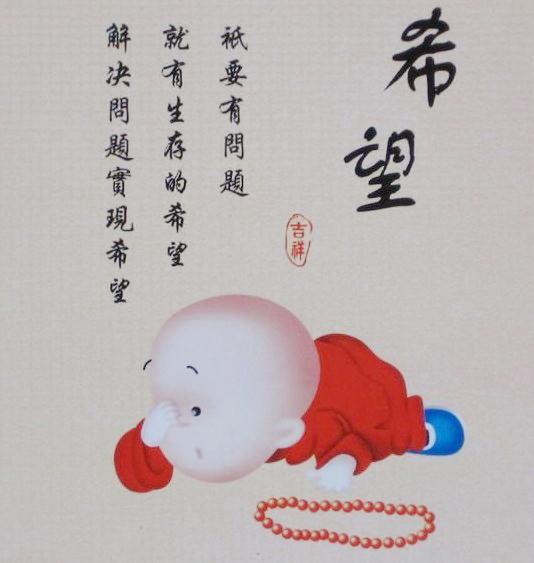 希望
吉祥
祇要有問題
就有生存的希望
解决問題實現希望